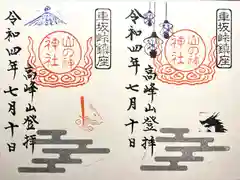 車坂峠鎮座
山の神神社
高峰山登拝
令和四年七月十日
車坂峠鎮座
山の神神社
高峰山登拝
令和四年七月十日